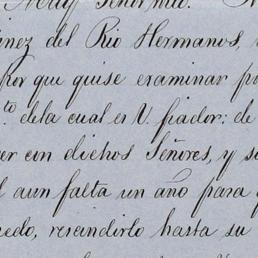 Muy Señor mio.
nez del Rio Hermanos,
por que quise examinar
to. dela cual es V. fiador: de
er con dichos Señores, y s
l aun falta un año para
edo, rescindirlo hasta su